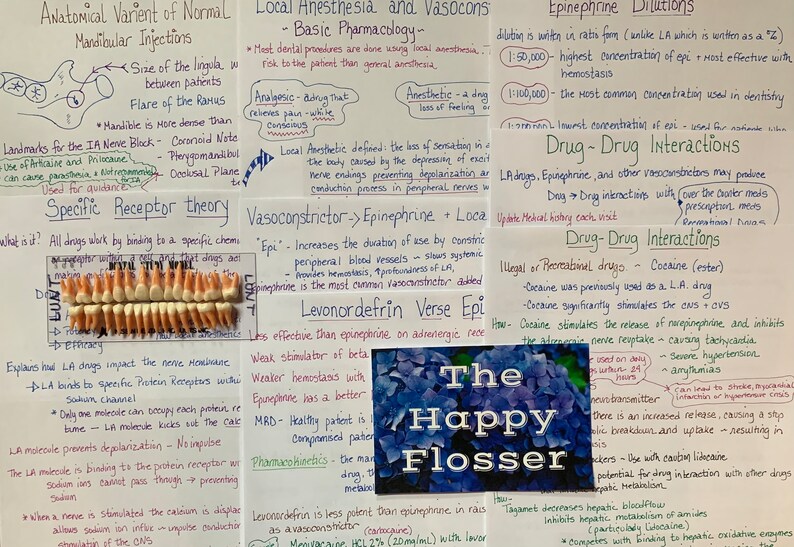 Anatomical Varient of Normal
Mandibular Injections
Size of the lingula w
between patients
Flare of the Ramus
*Mandible is More dense than
Landmarks for the IA Nerve Block -
Coronoid Notc
- Pterygomandibul
- Occlusal Plane
Use of Articaine and Prilocaine
can cause parasthesia * Not recommended
for IA
Used for guidance
Local Anesthesia and Vasocons
~ Basic Pharmacology ~
* Most dental procedures are done using local anesthesia.
risk to the patient than general anesthesia
Analgesic - a drug that
relieves pain - while
conscious
Anesthetic - a drug
loss of feeling or
Local Anesthetic defined: the loss of sensation in a
the body caused by the depression of excit
nerve endings preventing depolarization an
conduction process in peripheral nerves w
Epinephrine Dilutions
dilution is written in ratio form (unlike LA which is written as a %)
1:50,000 - highest concentration of epi + most effective with
hemostasis
1:100,000 - the most common concentration used in dentistry
lowest concentration of epi - used for patients who
Drug-Drug Interactions
LA drugs, Epinephrine, and other vasoconstrictors may produce
Drug → Drug interactions with
over the counter meds
prescription meds
Recreational Drugs
Update Medical history each visit
Specific Receptor theory
What is it? All drugs work by binding to a specific chemi
receptor within a cell and that drugs act
LUNT
LUNT
→ Efficacy
Explains how LA drugs impact the nerve Membrane
→ LA binds to specific Protein Receptors withi
Sodium channel
* Only one molecule can occupy each protein re
time - LA molecule kicks out the calc
LA molecule prevents depolarization - No impulse
The LA molecule is binding to the protein receptor w
sodium ions cannot pass through → preventing
sodium
* When a nerve is stimulated the calcium is displac
allows sodium ion influx ~ impulse conduction
stimulation of the CNS
Vasoconstrictor → Epinephrine + Loca
"Epi" - Increases the duration of use by constric
peripheral blood vessels ~ slows systemic
- Provides hemostasis, ↑ profoundness of LA,
Epinephrine is the most common vasoconstrictor added
Levonordefrin Verse Epi
Less effective than epinephrine on adrenergic rece
Weak stimulator of beta
Weaker hemostasis with
Epinephrine has a better
MRD - Healthy patient is
compromised patien
Pharmacokinetics - the man
drug, th
metabol
Levonordefrin is less potent than epinephrine in rais
as a vasoconstrictor
(carbocaine)
Mepivacaine HCL 2% (20mg/mL) with levor
Drug-Drug Interactions
Illegal or Recreational drugs ~ Cocaine (ester)
- Cocaine was previously used as a L.A. drug
- Cocaine significantly stimulates the CNS + CVS
How - Cocaine stimulates the release of norepinephrine and inhibits
the adrenergic nerve reuptake ~ causing tachycardia
~ Severe hypertension
~ arrythmias
used on day
24
hours
can lead to Stroke, myocardial
infarction or hypertensive crisis
neurotransmitter
there is an increased release, causing a stop
olic breakdown and uptake ~ resulting in
sis
ockers ~ Use with caution lidocaine
potential for drug interaction with other drugs
hepatic Metabolism.
How -
Tagamet decreases hepatic bloodflow
Inhibits hepatic metabolism of amides
(particularly Lidocaine)
* competes with binding to hepatic oxidative enzymes
The
Happy
Flosser